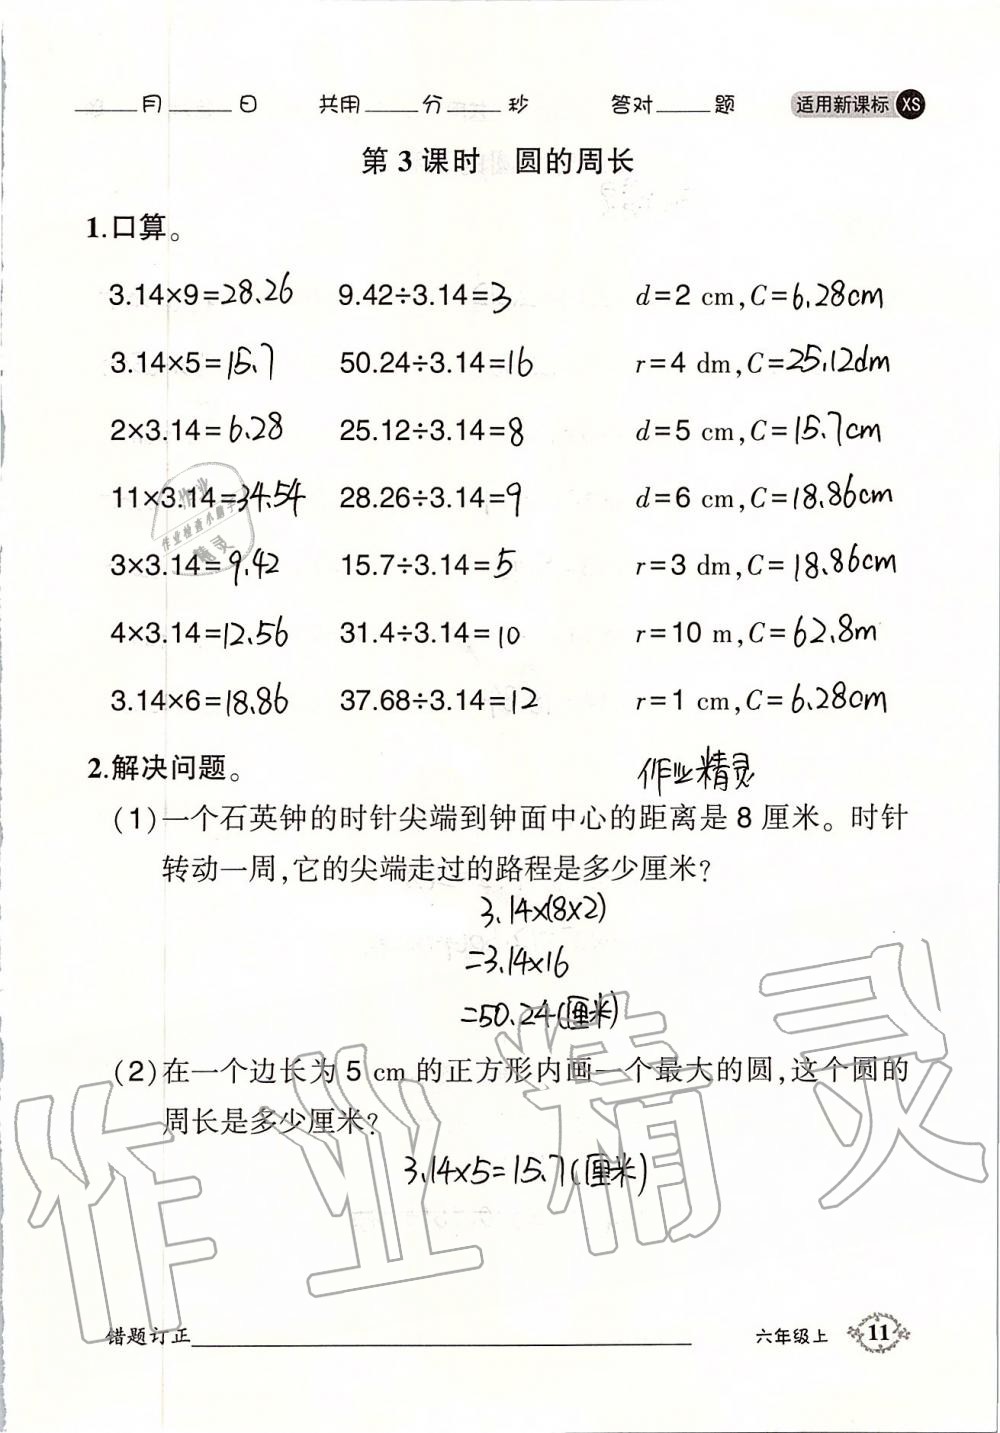 ____月____日 共用____分____秒 答对____题 适用新课标 XS
第3课时 圆的周长
1.口算。
3.14×9=28.26 9.42÷3.14=3 d=2 cm,C=6.28cm
3.14×5=15.7 50.24÷3.14=16 r=4 dm,C=25.12dm
2×3.14=6.28 25.12÷3.14=8 d=5 cm,C=15.7cm
11×3.14=34.54 28.26÷3.14=9 d=6 cm,C=18.86cm
3×3.14=9.42 15.7÷3.14=5 r=3 dm,C=18.86cm
4×3.14=12.56 31.4÷3.14=10 r=10 m,C=62.8m
3.14×6=18.86 37.68÷3.14=12 r=1 cm,C=6.28cm
作业
作业检查小助手
精灵
2.解决问题。 作业精灵
(1)一个石英钟的时针尖端到钟面中心的距离是8厘米。时针
转动一周,它的尖端走过的路程是多少厘米?
3.14×(8×2)
=3.14×16
=50.24(厘米)
(2)在一个边长为5 cm的正方形内画一个最大的圆,这个圆的
周长是多少厘米?
3.14×5=15.7(厘米)
作业精灵
错题订正____ 六年级上 11